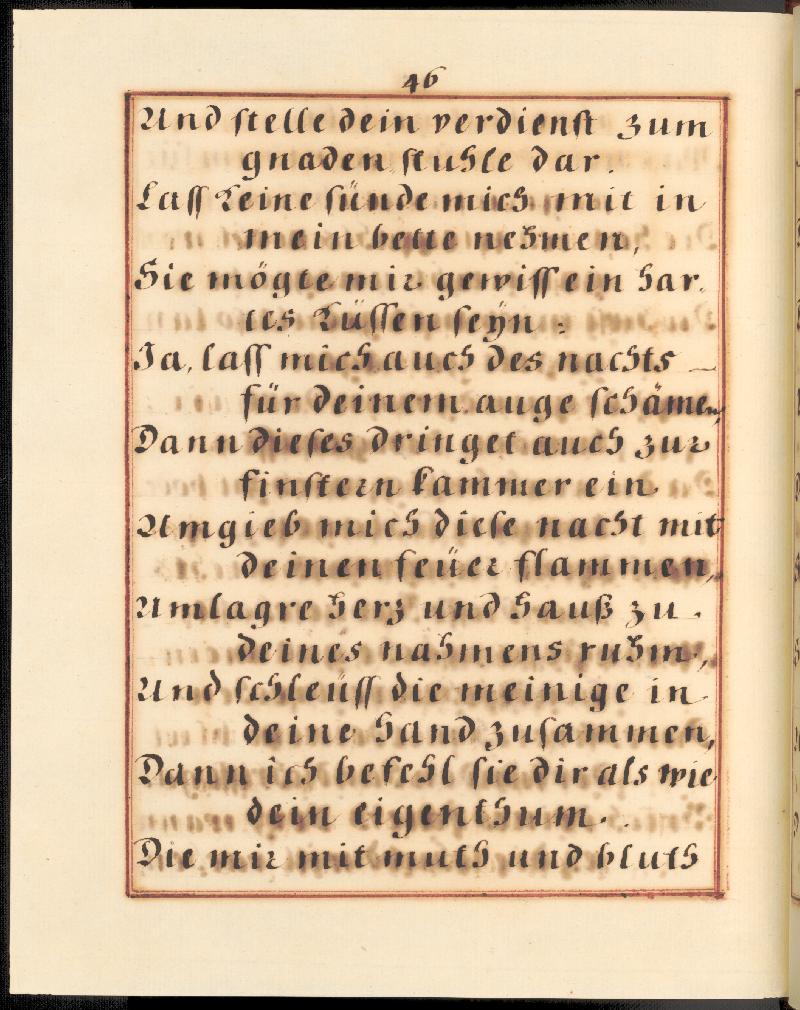 46
Und stelle dein verdienst zum
gnaden stuhle dar.
Lass keine sünde mich mit in
mein bette nehmen,
Sie mögte mir gewiss ein har-
tes küssen seÿn.
Ja, lass mich auch des nachts
für deinem auge schämen,
Dann dieses dringet auch zur
finstern kammer ein.
Umgieb mich diese nacht mit
deinen feüer flammen,
Umlagre herz und hauß zu
deines nahmens ruhm,
Und schleüss die meinige in
deine hand zusammen,
Dann ich befehl sie dir als wie
dein eigenthum.
Die mir mit muth und bluth